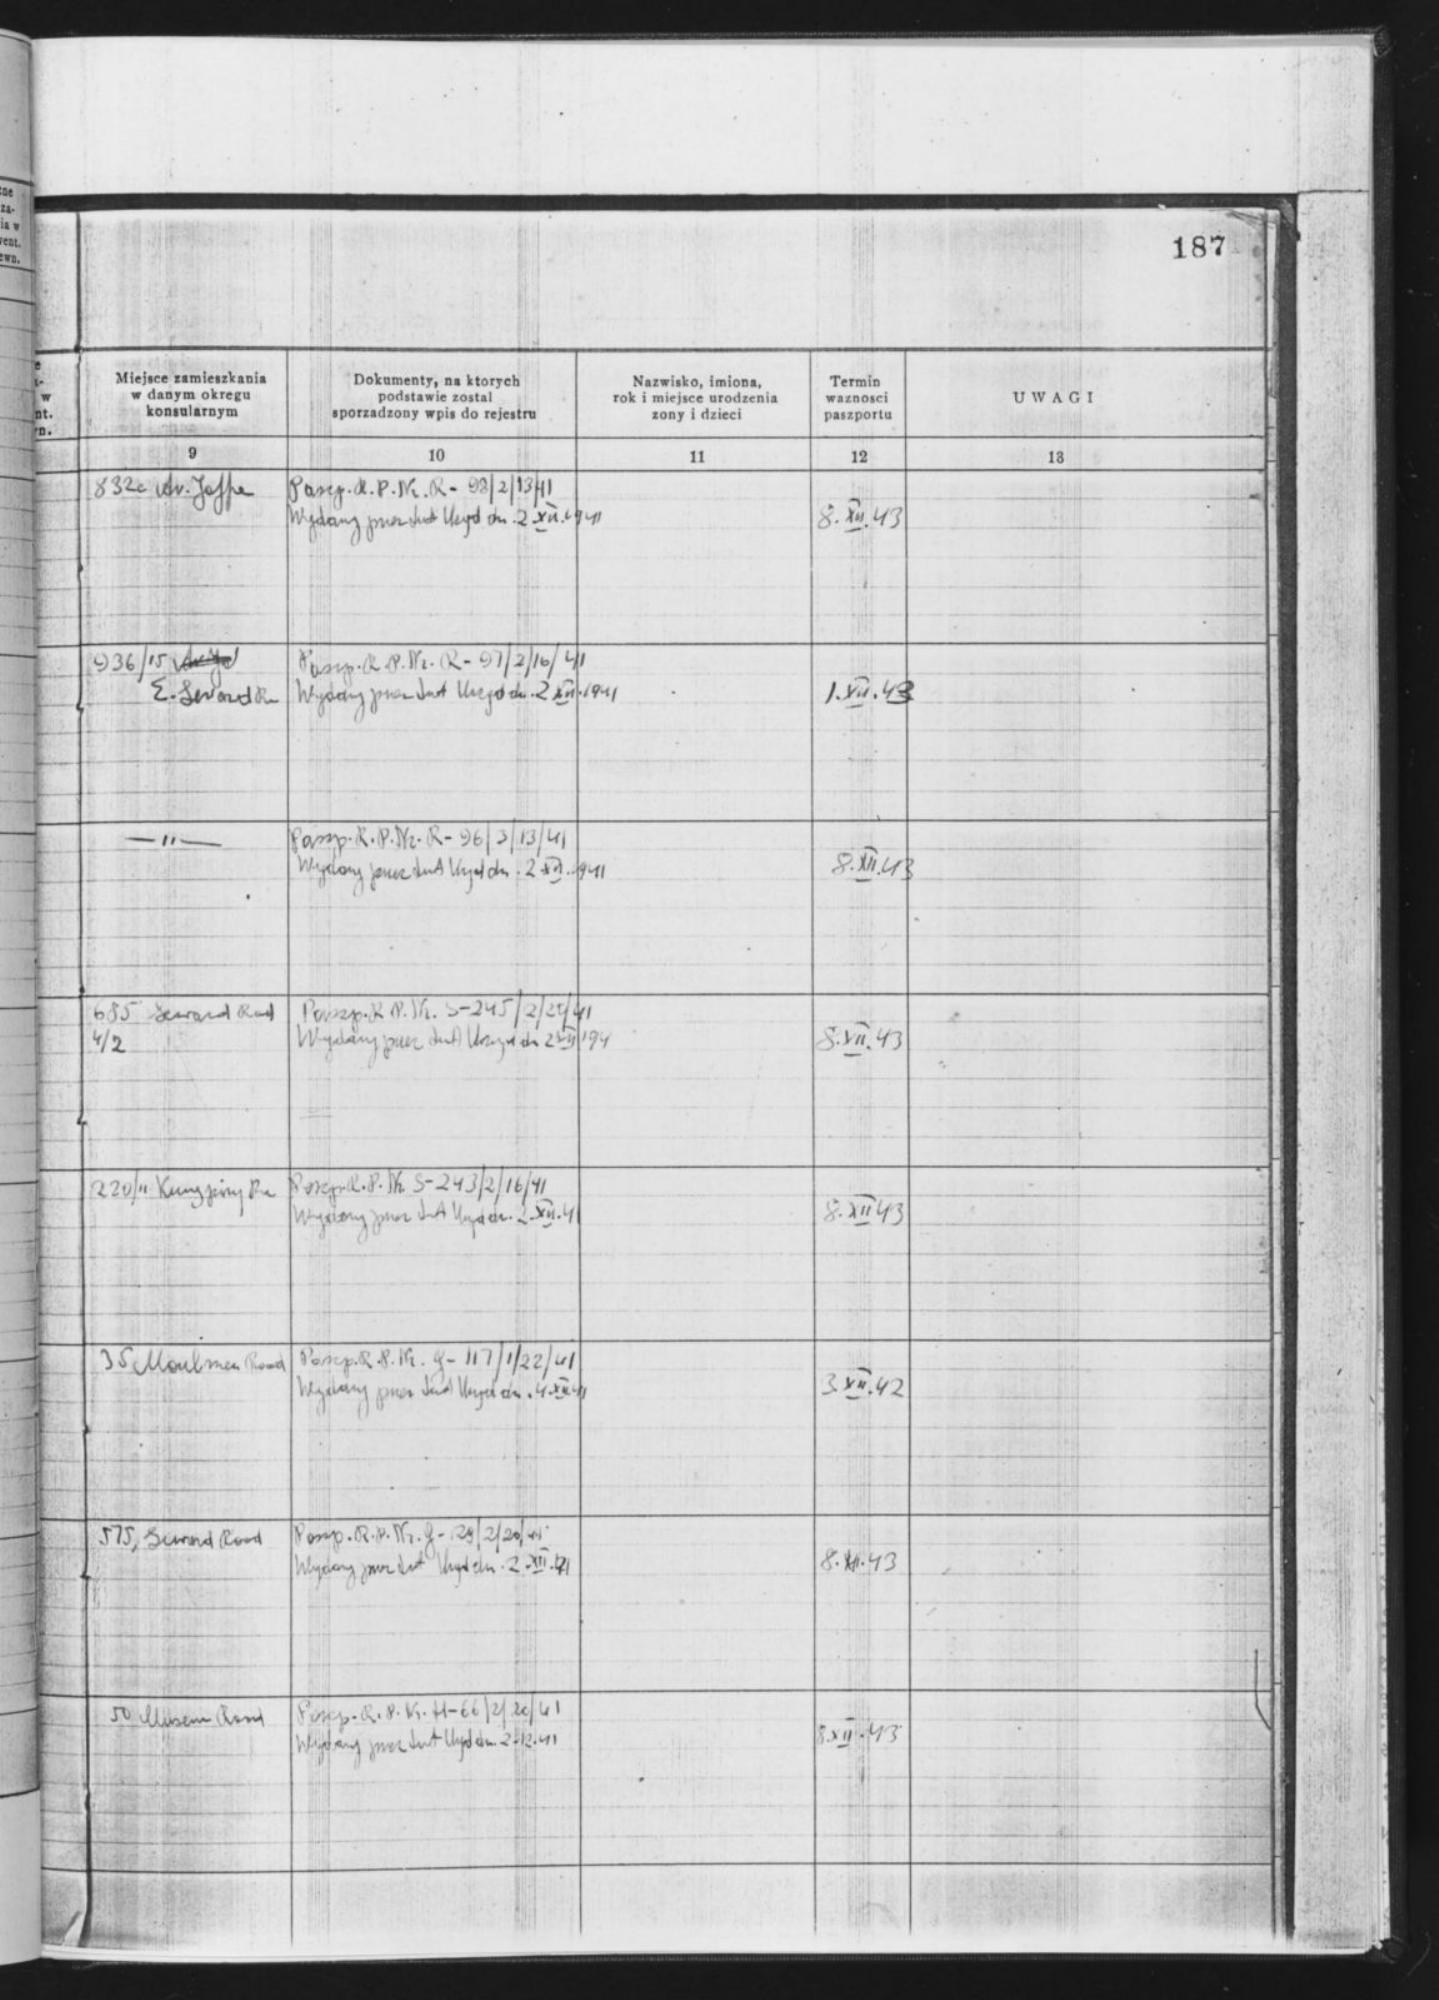 187
Miejsce zamieszkania
w danym okregu
konsularnym
Dokumenty, na ktorych
podstawie zostal
sporzadzony wpis do rejestru
Nazwisko, imiona,
rok i miejsce urodzenia
zony i dzieci
Termin
waznosci
paszportu
UWAGI
9
10
11
12
13
832c Av. Joffre
Paszp. R. P. Nr. R - 98/2/13/41
Wydany przez tut Urząd dn. 2.XII.1941
8.XII.43
936/15
E. Seward Rd
Paszp. R. P. Nr. R - 97/2/16/41
Wydany przez tut Urząd dn. 2 XII.1941
1.XII.43
— " —
Paszp. R. P. Nr. R - 96/3/13/41
Wydany przez tut Urząd dn. 2 XII.1941
8.XII.43
685 Seward Road
4/2
Paszp. R. P. Nr. S-245/2/25/41
Wydany przez tut Urząd dn 2 XII 194
8.XII.43
220/11 Kungping Rd
Paszp. R. P. Nr S-243/2/16/41
Wydany przez tut Urząd dn. 2.XII.41
8.XII 43
35 Moulmen Road
Paszp. R. P. Nr. G - 117/1/22/41
Wydany przez tut Urząd dn. 4.XII.41
3.XII.42
575, Seward Road
Paszp. R. P. Nr. G - 29/2/20/41
Wydany przez tut Urząd dn. 2.XII.41
8.XII.43
50 Museum Road
Paszp. R. P. Nr. H-66/2/20/41
Wydany przez tut Urząd dn. 2.12.41
8.XII.43